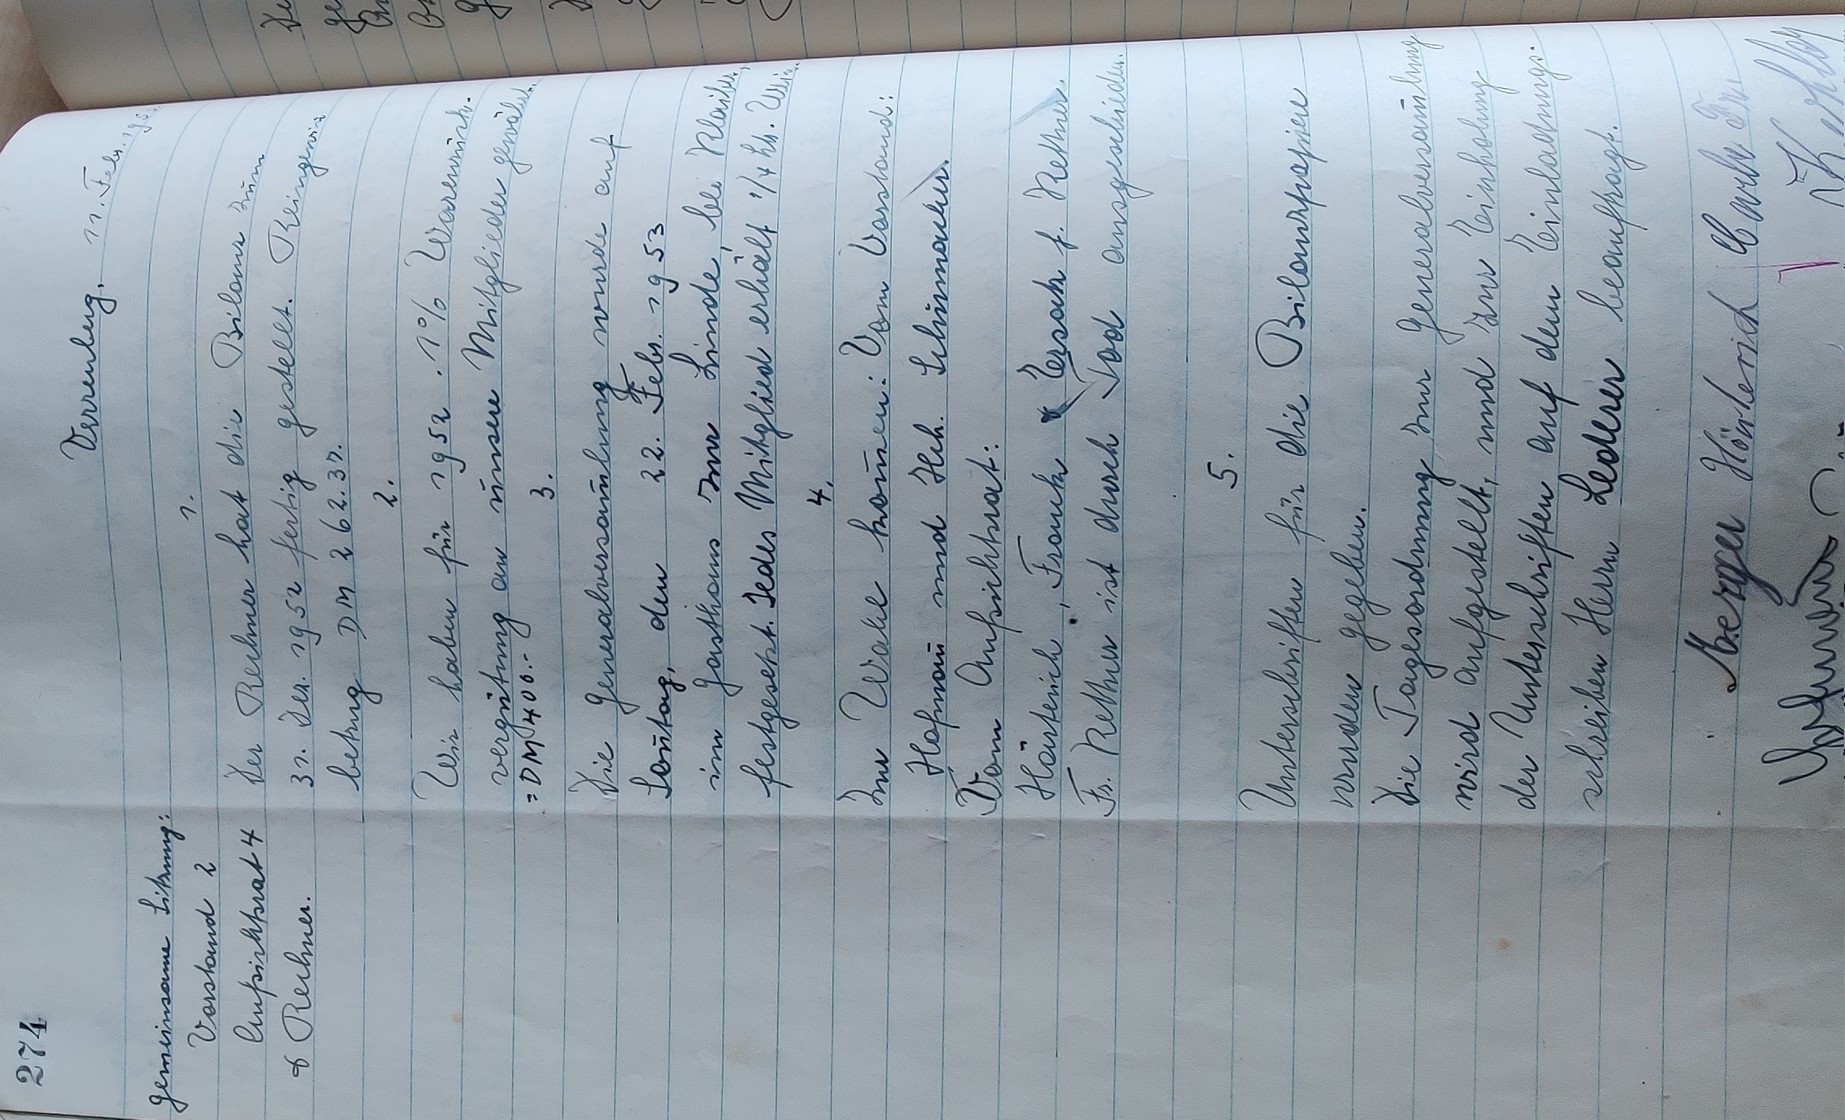 274
Verrenberg, 11. Febr. 195
Gemeinsame Sitzung:
Vorstand 2
Aufsichtsrat 4
& Rechner.
1.
Der Rechner hat die Bilanz zum
31. Dez. 1952 fertig gestellt. Reingewin
betrag DM 262.37.
2.
Wir haben für 1952 . 1% Warenrück-
vergütung an unsere Mitglieder gewährt.
= DM 400.-
3.
Die Generalversam̄lung wurde auf
Son̄tag, den 22. Febr. 1953
im Gasthaus zur Linde, bei
festgesetzt. Jedes Mitglied erhält 1/4 Ltr. Wein.
4.
Zur Wahl kom̄en: Vom Vorstand:
Hofman̄ und Hch. Schumacher.
Vom Aufsichtsrat:
Hörterich, Frank & Ersatz f. Rether.
Fr. Rether ist durch Tod ausgeschieden.
5.
Unterschriften für die Bilanzpapiere
wurden gegeben.
Die Tagesordnung zur Generalversam̄lung
wird aufgestellt, und zur Einholung
der Unterschriften auf dem Einladungs-
schreiben Herrn Lederer beauftragt.
Metzger Hörterich Carle